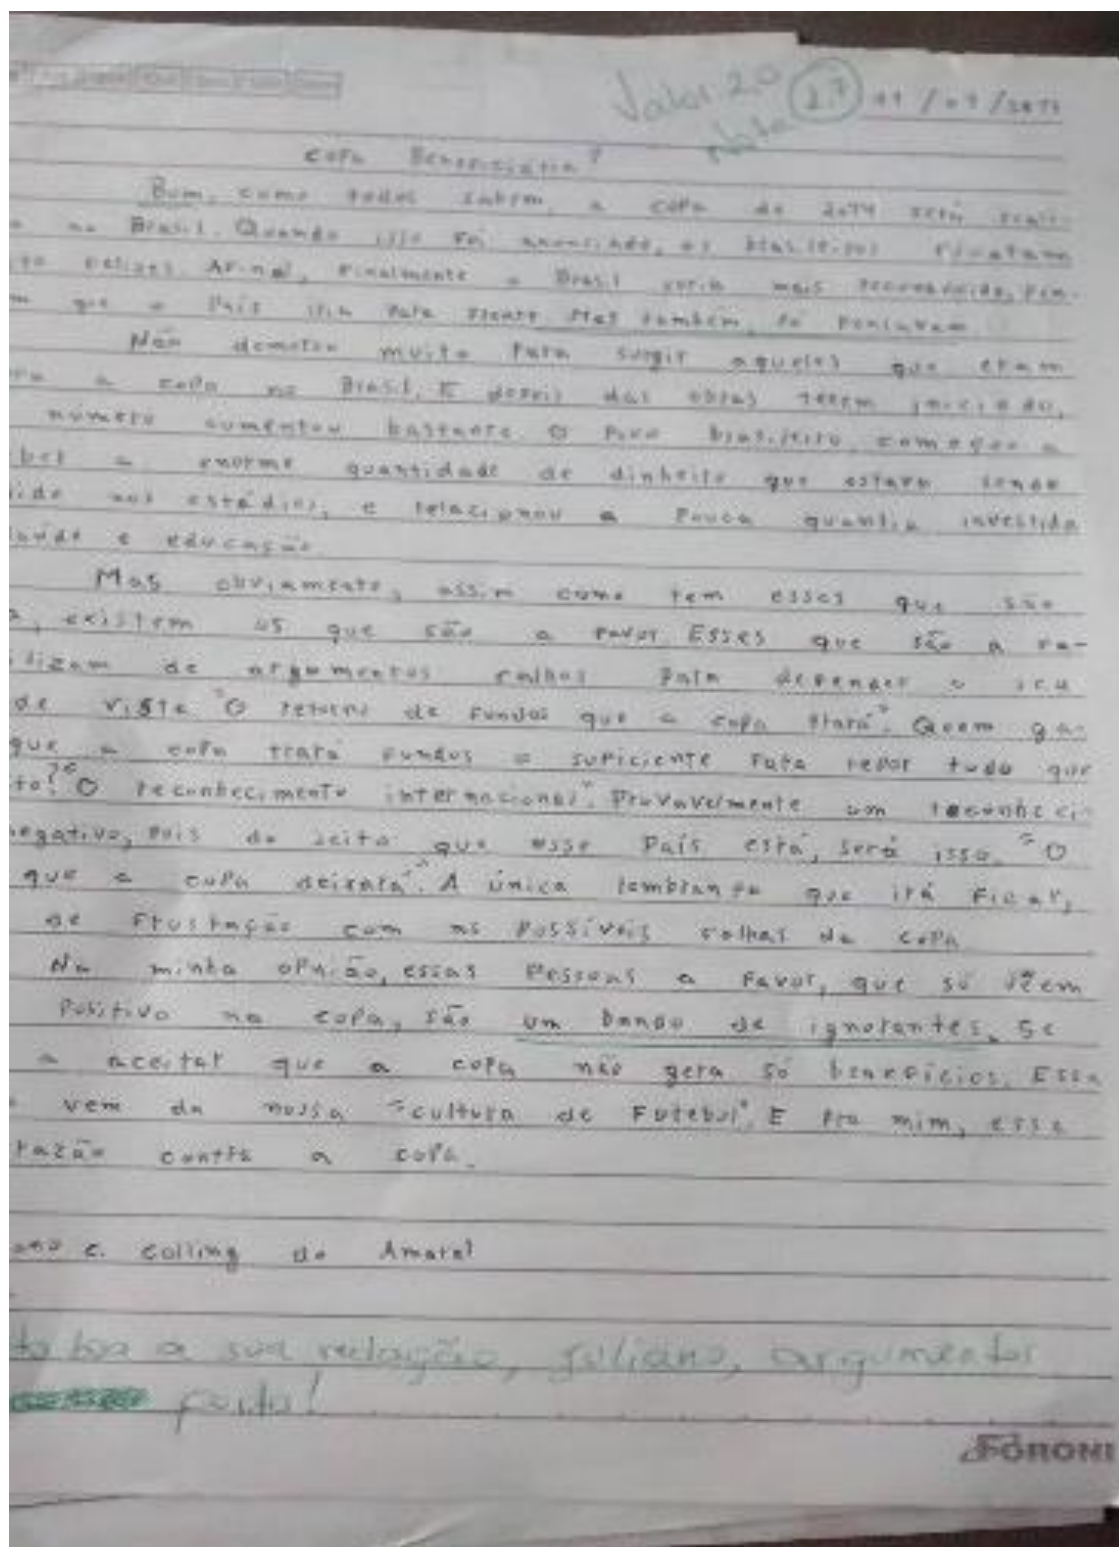 Valor 2.0
nota 1.7
Copa Beneficiária?
Bom, como todos sabem, a copa de 2014 será reali-
o no Brasil. Quando isso foi anunciado, os brasileiros ficaram
to felizes. Afinal, finalmente o Brasil seria mais reconhecido, pen-
m que o País iria para frente também, só pensavam
Não demorou muito para surgir aqueles que eram
ra a copa no Brasil. E depois das obras terem iniciado,
número aumentou bastante. O povo brasileiro começou a
ber a enorme quantidade de dinheiro que estava sendo
ido nos estádios, e relacionou a pouca quantia investida
saúde e educação.
Mas obviamente, assim como tem esses que são
a, existem os que são a favor. Esses que são a fa-
lizam de argumentos falhos para defender o seu
de vista "O retorno de fundos que a copa trará". Quem ga-
que a copa trará fundos o suficiente para repor tudo que
to? "O reconhecimento internacional". Provavelmente um reconheci-
negativo, pois do jeito que esse País está, será isso. "O
que a copa deixará". A única lembrança que irá ficar,
de frustação com as possíveis falhas da copa.
Na minha opnião, essas pessoas a favor, que só vêem
positivo na copa, são um bando de ignorantes. Se
a aceitar que a copa não gera só benefícios. Essa
vem da nossa "cultura de Futebol". E pra mim, esse
razão contra a copa.
ano C. Colling do Amaral
to boa a sua redação, Juliano, argumentos
FORONI